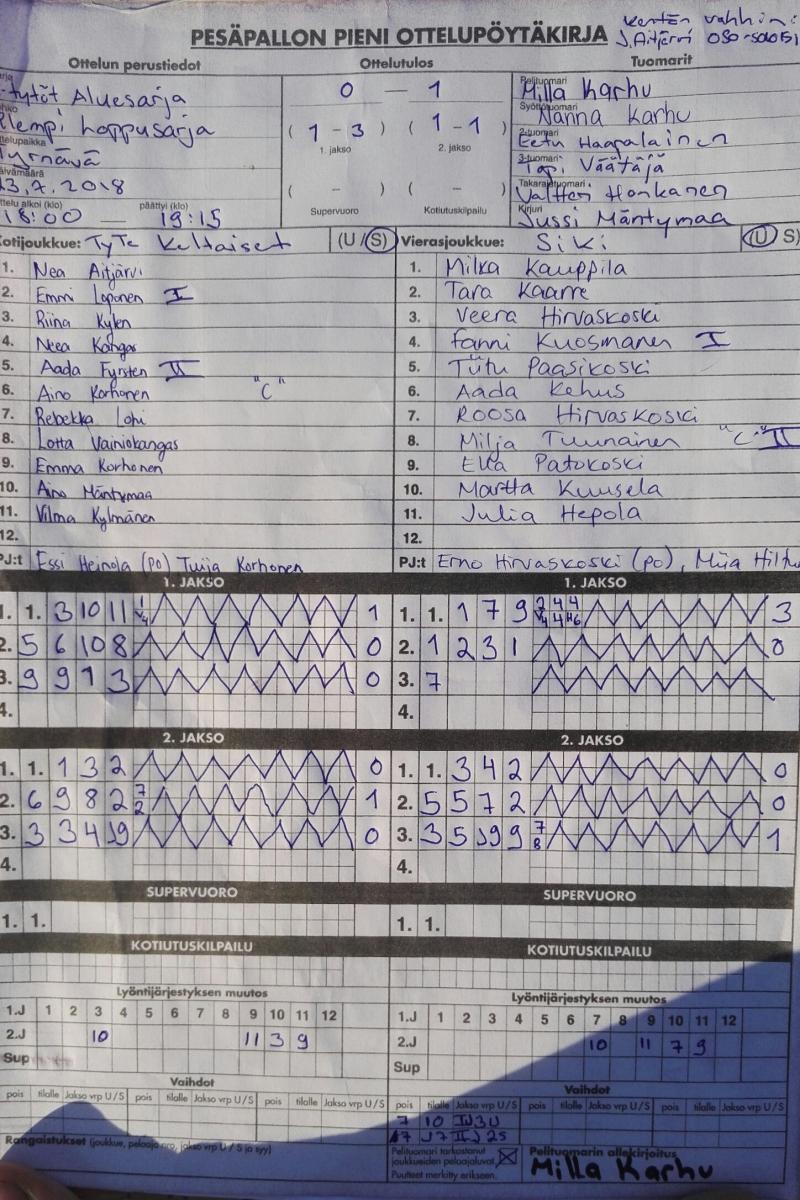 PESÄPALLON PIENI OTTELUPÖYTÄKIRJA
Kentän vanhin:
J. Aitjärvi 050-
Ottelun perustiedot Ottelutulos Tuomarit
tytöt Aluesarja
loppusarja
Tyrnävä
.7.2018
18:00 — päättyi (klo) 19:15
0 — 1
( 1 - 3 ) ( 1 - 1 )
1. jakso 2. jakso
( - ) ( - )
Supervuoro Kotiutuskilpailu
Pelituomari
Milla Karhu
Syöttötuomari
Nanna Karhu
2-tuomari
Eetu Haapalainen
3-tuomari
Topi Väätäjä
Takarajatuomari
Valtteri Honkanen
Kirjuri
Jussi Mäntymaa
Kotijoukkue: TyTe Keltaiset (U / S)
1. Nea Aitjärvi
2. Emmi Loponen I
3. Riina Kylen
4. Neea Kangas
5. Aada Fyrsten II
6. Aino Korhonen "C"
7. Rebekka Lohi
8. Lotta Vainiokangas
9. Emma Korhonen
10. Aino Mäntymaa
11. Vilma Kylmänen
12.
PJ:t Essi Heinola (po) Tuija Korhonen
Vierasjoukkue: SiKi (U / S)
1. Milka Kauppila
2. Tara Kaarre
3. Veera Hirvaskoski
4. Fanni Kuosmanen I
5. Tutu Paasikoski
6. Aada Kehus
7. Roosa Hirvaskoski
8. Milja Tuunainen "C" II
9. Ella Patokoski
10. Martta Kuusela
11. Julia Hepola
12.
PJ:t Erno Hirvaskoski (po), Miia
1. JAKSO
1. 1. 3 10 11 1
2. 5 6 10 8 0
3. 9 9 1 3 0
4.
1. JAKSO
1. 1. 1 7 9 3
2. 1 2 3 1 0
3. 7
4.
2. JAKSO
1. 1. 1 3 2 0
2. 6 9 8 2 7/2 1
3. 3 3 4 J9 0
4.
2. JAKSO
1. 1. 3 4 2 0
2. 5 5 7 2 0
3. 3 5 J9 9 7/8 1
4.
SUPERVUORO
1. 1.
SUPERVUORO
1. 1.
KOTIUTUSKILPAILU
KOTIUTUSKILPAILU
Lyöntijärjestyksen muutos
1.J 1 2 3 4 5 6 7 8 9 10 11 12
2.J 10 11 3 9
Sup
Lyöntijärjestyksen muutos
1.J 1 2 3 4 5 6 7 8 9 10 11 12
2.J 10 11 7 9
Sup
Vaihdot
pois tilalle Jakso vrp U / S pois tilalle Jakso vrp U / S pois tilalle Jakso vrp U / S
Vaihdot
pois tilalle Jakso vrp U / S pois tilalle Jakso vrp U / S pois tilalle Jakso vrp U / S
7 10
Rangaistukset (joukkue, pelaaja nro, jakso vrp U / S ja syy)
Pelituomari tarkastanut
joukkueiden pelaajaluvat.
Puutteet merkitty erikseen.
Pelituomarin allekirjoitus
Milla Karhu